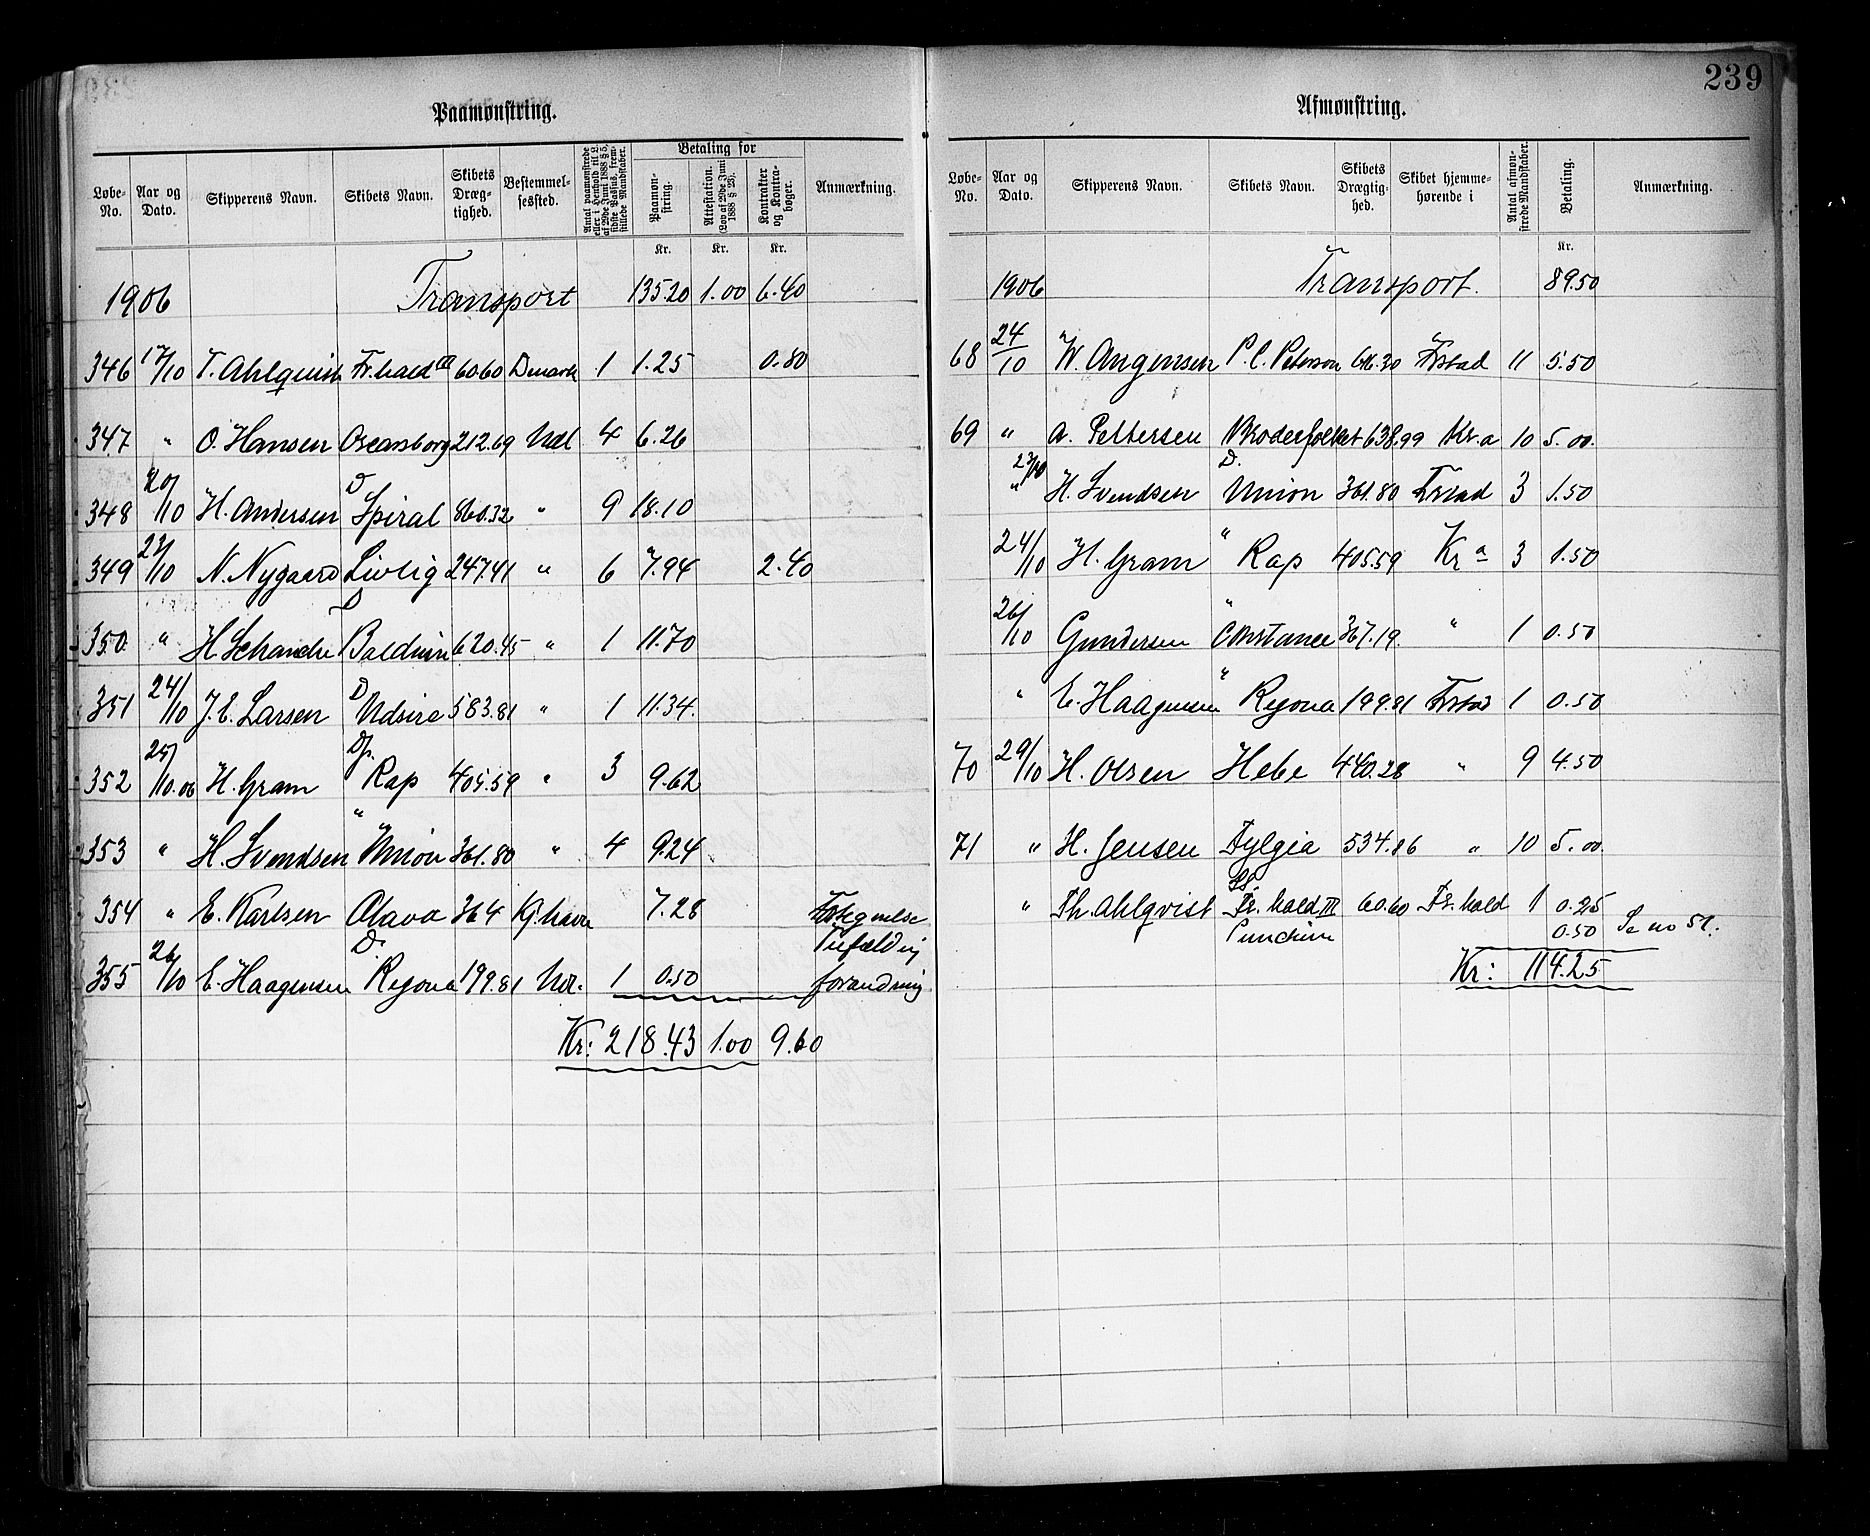 239
Paamønstring.
Løbe-No. Aar og Dato. Skipperens Navn. Skibets Navn. Skibets Dræg-tighed. Bestemmel-sessted. Antal paamønstrede eller i Henhold til L. af 29de Juni 1888 § 5, sidste Passus, frem-stillede Mandskaber. Betaling for Paamøn-string. Attestation. (Lov af 29de Juni 1888 § 23). Kontrakter og Kontra-bøger. Anmærkning.
Kr. Kr. Kr.
1906 Transport 135.20 1.00 6.40
346 17/10 T. Ahlquist Fr.hald III 60.60 Dmark 1 1.25 0.80
347 " O. Hansen Oscarsborg 212.69 Udl 4 6.26
348 20/10 H. Andersen D Spiral 860.32 " 9 18.10
349 23/10 N. Nygaard Livlig 247.41 " 6 7.94 2.40
350 " H Schanche D Baldwin 620.45 " 1 11.70
351 24/10 J. E. Larsen D Udsire 583.81 " 1 11.34.
352 25/10.06 H. Gram D/. Rap 405.59 " 3 9.62
353 " H. Svendsen " Union 361.80 " 4 9.24
354 " E. Karlsen Olava 364 Kj.havn 7.28
355 26/10 E. Haagensen D. Ryona 199.81 Udl. 1 0.50 Tilfældig forandring
Kr: 218.43 1.00 9.60
Afmønstring.
Løbe-No. Aar og Dato. Skipperens Navn. Skibets Navn. Skibets Drægtig-hed. Skibet hjemme-hørende i Antal afmøn-strede Mandskaber. Betaling. Anmærkning.
Kr.
1906 Transport. 89.50
68 24/10 W. Angensen P. C. Peterson 616.30 Frstad 11 5.50
69 " A. Pettersen Broderfolket 638.99 Kr.a 10 5.00.
" 23/10 H. Svendsen D. Union 361.80 Frstad 3 1.50
24/10 H. Gram " Rap 405.59 Kr a 3 1.50
26/10 Gundersen " Constance 367.19. " 1 0.50
" E. Haagensen " Ryona 199.81 Frstad 1 0.50
70 29/10 H. Olsen Hebe 440.28 " 9 4.50
71 " H. Jensen Fylgia 534.86 " 10 5.00.
" Th. Ahlqvist SS. Fr. hald III 60.60 Fr. hald 1 0.25
0.50 Se no 51.
Kr: 114.25